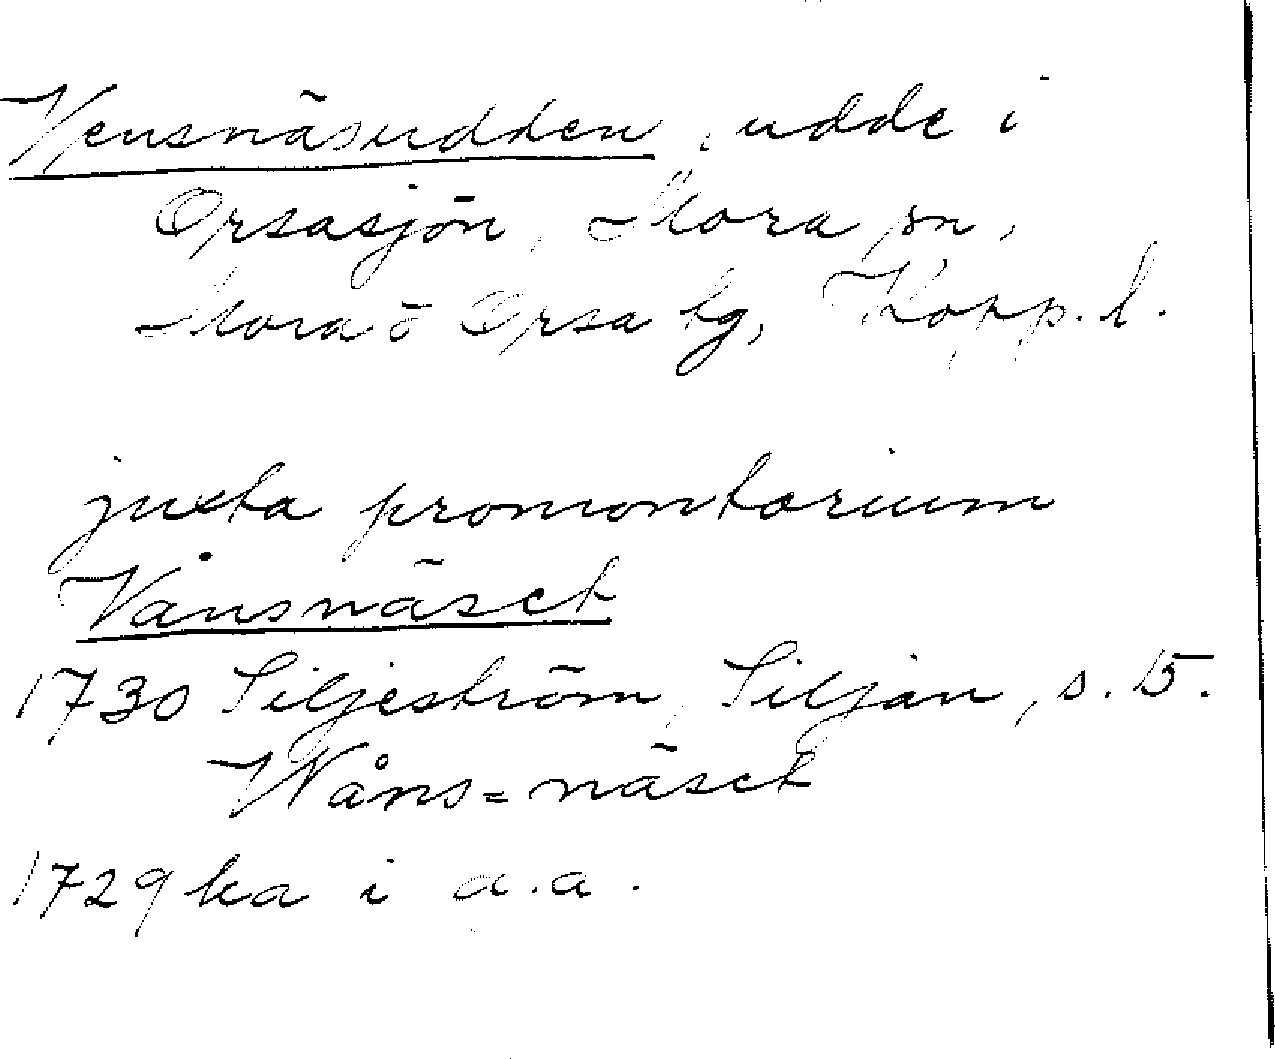 Vensnäsudden, udde i
Orsasjön, Mora sn,
Mora o Orsa tg, Kopp. l.
juxta promontorium
Vånsnäset
1730 Siljeström, Siljan, s. 15.
Wåns=näset
1729 ka i a.a.